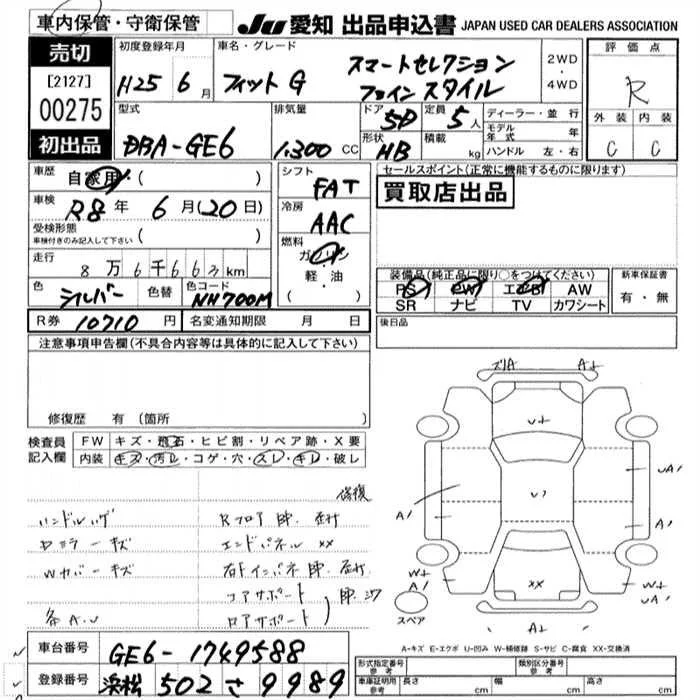 車内保管・守衛保管
JU 愛知 出品申込書 JAPAN USED CAR DEALERS ASSOCIATION
売切
[2127]
00275
初出品
初度登録年月
H25 6月
車名・グレード
フィット G スマートセレクション
ファインスタイル
2WD
・
4WD
評価点
R
外装 内装
C C
型式
DBA-GE6
排気量
1.300 CC
ドア
5D
形状
HB
定員
5人
積載
kg
ディーラー・並行
モデル年式 年
ハンドル 左・右
車歴 自家用 ( )
車検 R8年 6月(20日)
受検形態
車検付きのみ記入して下さい ( )
走行 8万6千663km
色 シルバー 色替 色コード NH700M
シフト
FAT
冷房
AAC
燃料
ガソリン
軽・油
セールスポイント(正常に機能するものに限ります)
買取店出品
装備品(純正品に限り○をつけてください)
PS PW エアB AW
SR ナビ TV カワシート
新車保証書
有・無
R券 10710円 名変通知期限 月 日
後日品
注意事項申告欄(不具合内容等は具体的に記入して下さい)
修復歴 有(箇所
検査員
記入欄
FW キズ・飛石・ヒビ割・リペア跡・X要
内装 キズ・汚レ・コゲ・穴・スレ・キレ・破レ
修復
ハンドルハゲ Rフロア
エンドパネル XX
Wカバーキズ
コアサポート
ロアサポート
ズリA
A
U
A1
UA1
A1
W
A1
UA1
XX
スペア
A-キズ E-エクボ U-凹み W-補修跡 S-サビ C-腐食 XX-交換済
車台番号 GE6-1749588
登録番号 浜松 502 さ 9989
形式指定番号
参考
類別区分番号
参考
車庫証明用
参考
長さ cm 幅 cm 高さ cm